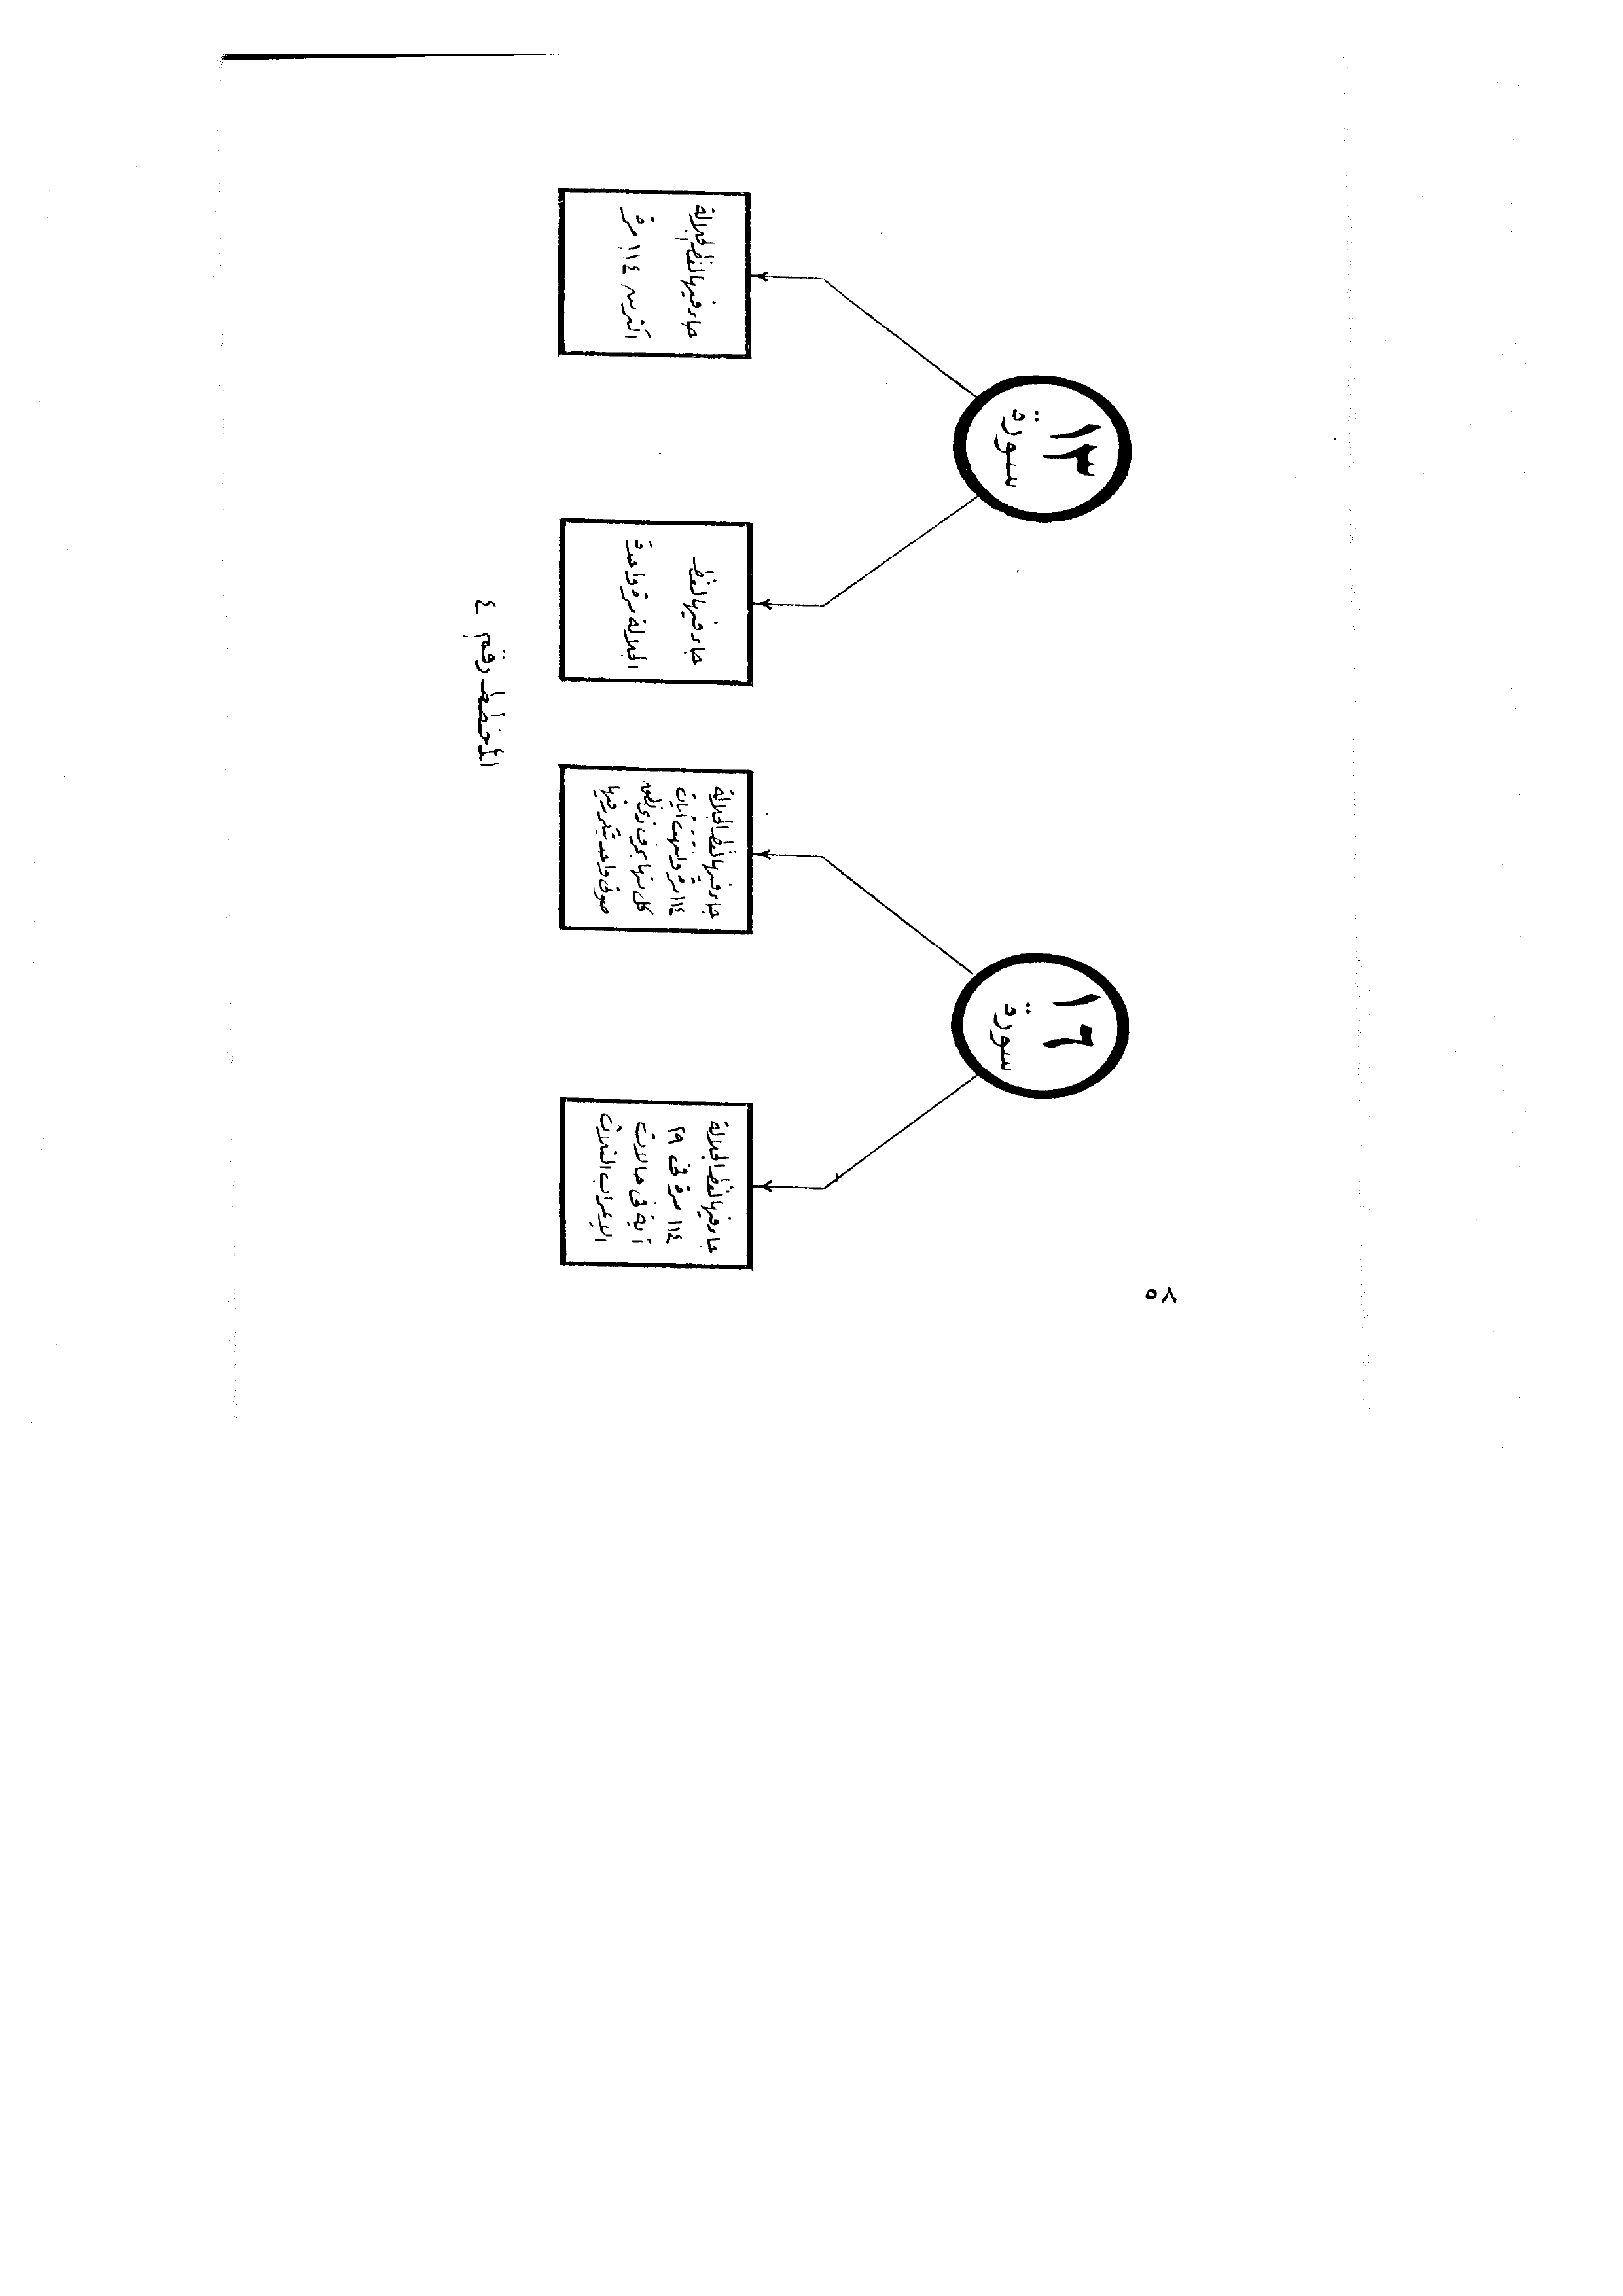 ١٦
سورة
١٣
سورة
جاء فيها لفظ الجلالة
١١٤ مرة في ٢٩
آية في حالات
الإعراب الثلاث
جاء فيها لفظ الجلالة
١١٤ مرة وانتهت آيات
كل منها بحرف ذي
صوتي واحد يتكرر فيها
جاء فيها لفظ
الجلالة مرة واحدة
جاء فيها لفظ الجلالة
اكثر من ١١٤ مرة
المخطط رقم ٤
٥٨